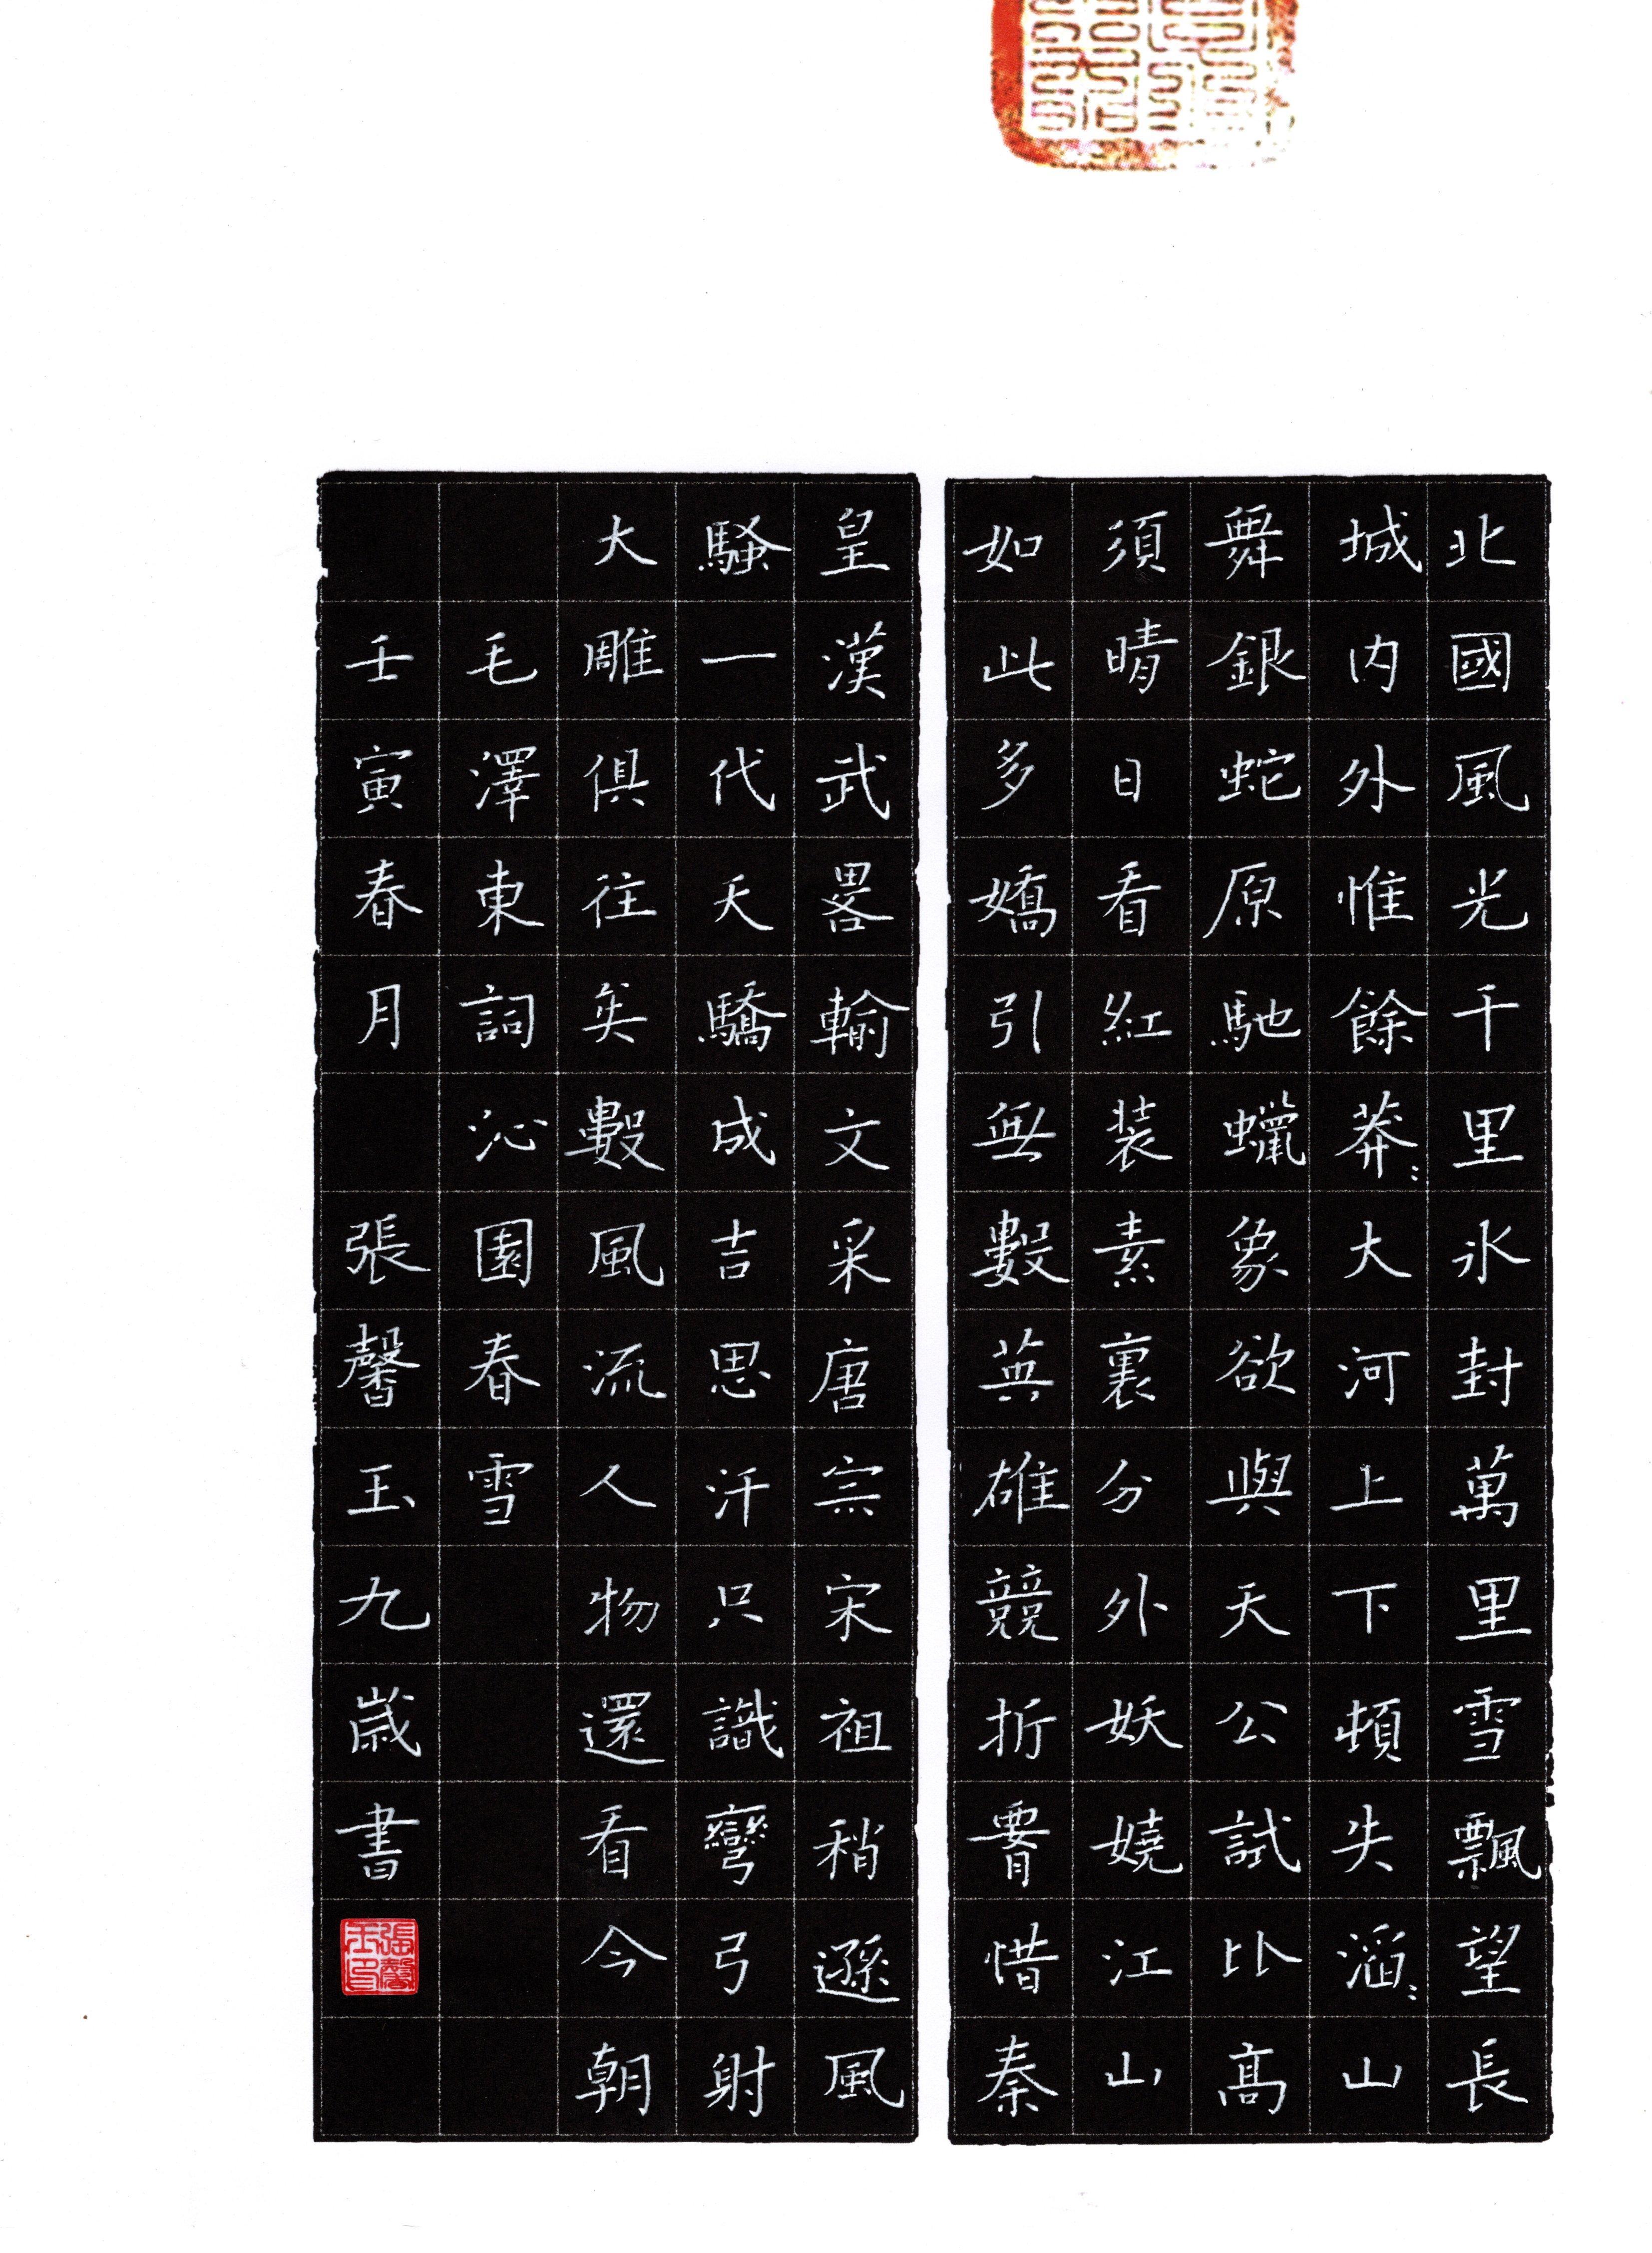 北國風光千里冰封萬里雪飄望長
城内外惟餘莽：大河上下頓失滔：山
舞銀蛇原馳蠟象欲與天公試比高
須晴日看紅装素裹分外妖嬈江山
如此多嬌引無數英雄競折胥惜秦
皇漢武畧輸文采唐宗宋祖稍遜風
騷一代天驕成吉思汗只識彎弓射
大雕俱往矣數風流人物還看今朝
毛澤東詞沁園春雪
壬寅春月 張馨玉九歲書
張馨玉印